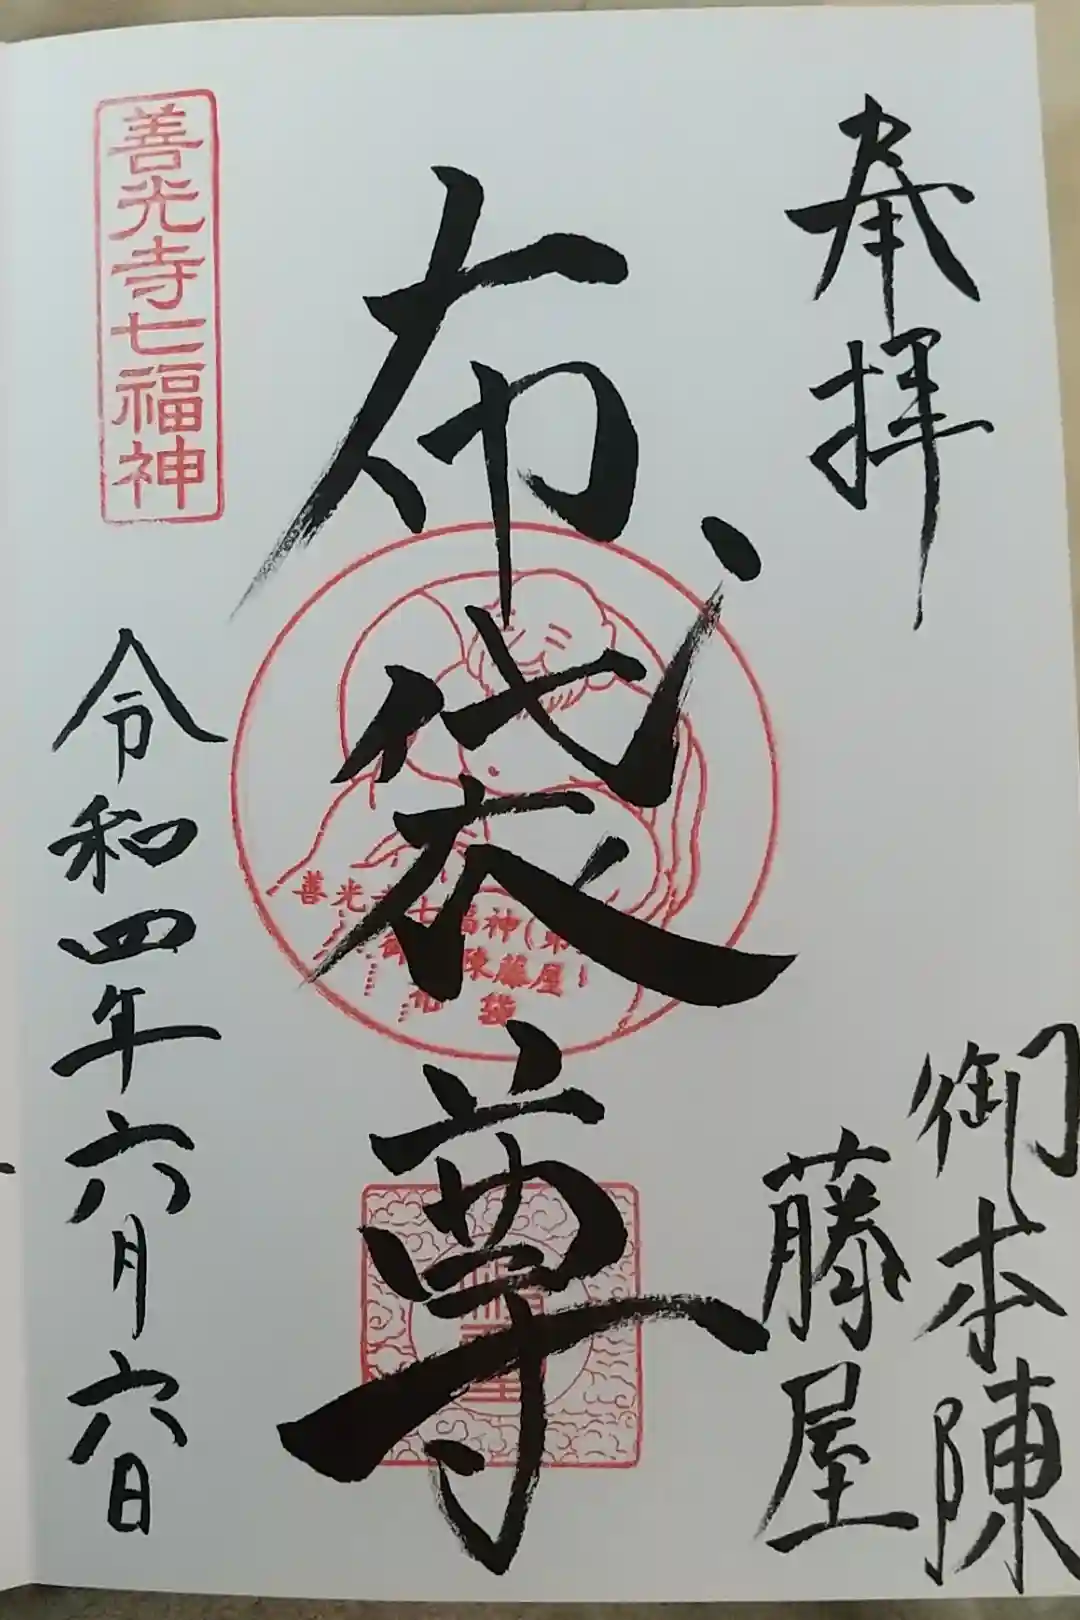 奉拝
御本陳
藤屋
布袋尊
善光寺七福神
令和四年六月六日
善光寺七福神
陳藤屋